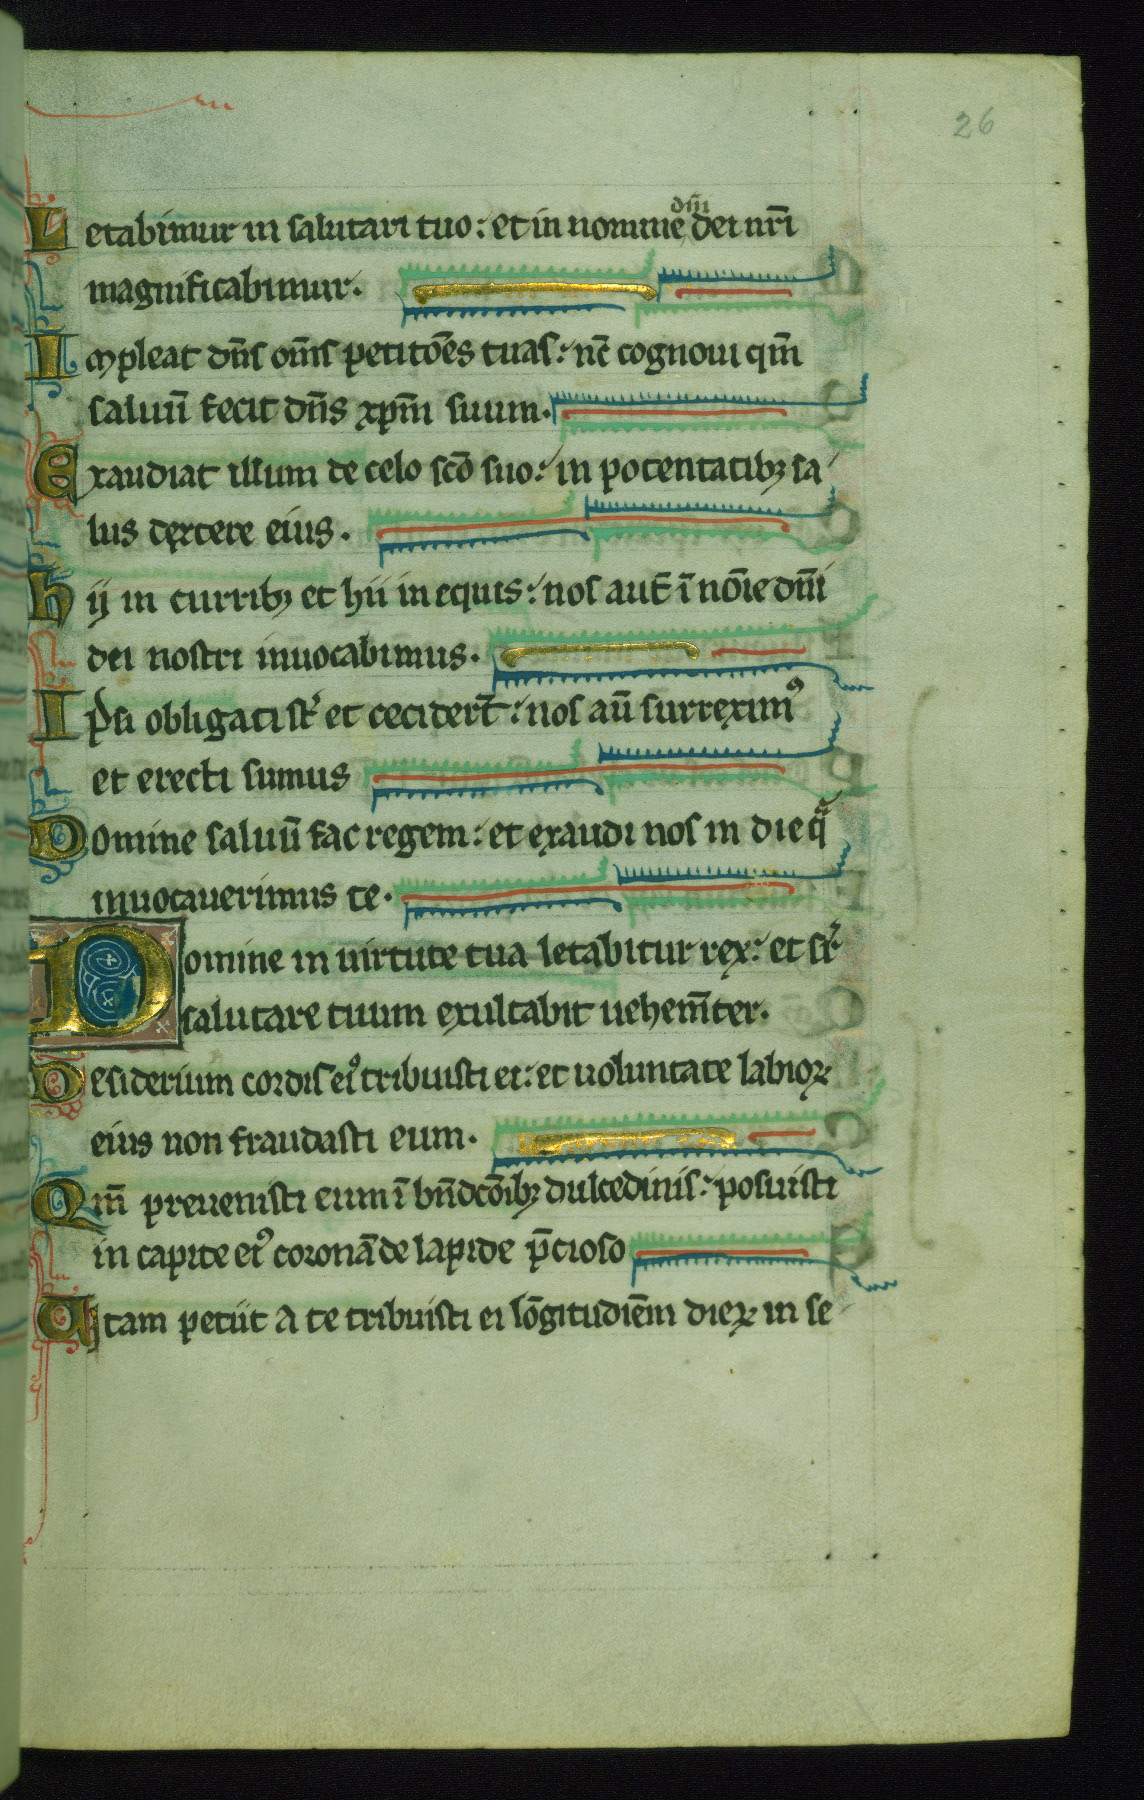 26
Letabimur in salutari tuo: et in nomine dm̄i dei nr̄i
magnificabimur.
Impleat dn̄s om̄s petitōēs tuas: nc̄ cognoui qm̄
saluū fecit dn̄s xpm̄ suum.
Exaudiat illum de celo scō suo: in potentatibꝫ sa
lus dextere eius.
hij in curribꝫ et hii in equis: nos aut̄ ī nōīe dm̄i
dei nostri inuocabimus.
Ipsi obligati st̄ et cecidert̄: nos aū surreximꝰ
et erecti sumus
Domine saluū fac regem: et exaudi nos in die qᵃ
inuocauerimus te.
Domine in uirtute tua letabitur rex: et sr̄
salutare tuum exultabit uehem̄ter.
Desiderium cordis eiꝰ tribuisti ei: et uoluntate labioꝝ
eius non fraudasti eum.
Qm̄ preuenisti eum ī bn̄dcōibꝫ dulcedinis: posuisti
in capite eiꝰ coronā de lapide p̄cioso
Uitam petiit a te tribuisti ei lōgitudiēm dieꝝ in se